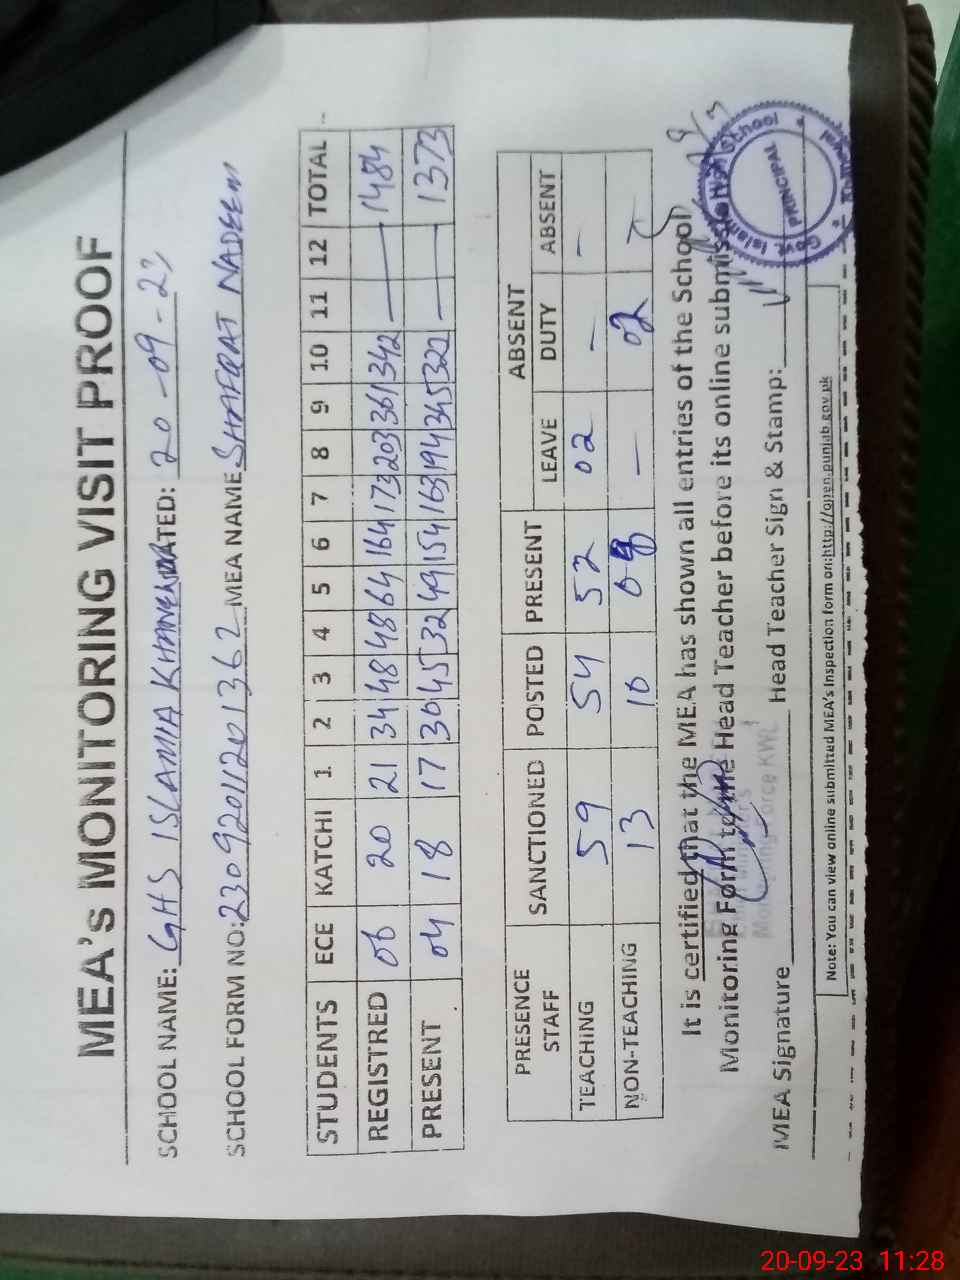 MEA's MONITORING VISIT PROOF
SCHOOL NAME: GHS ISLAMIA KHANEWAL DATED: 20-09-23
SCHOOL FORM NO: 23092011201362 MEA NAME SHAFQAT NADEEM
STUDENTS ECE KATCHI 1 2 3 4 5 6 7 8 9 10 11 12 TOTAL
REGISTRED 06 20 21 34 48 48 64 164 173 203 361 342 — — 1484
PRESENT 04 18 17 30 45 32 49 154 163 194 345 322 — — 1373
PRESENCE STAFF SANCTIONED POSTED PRESENT ABSENT
LEAVE DUTY ABSENT
TEACHING 59 54 52 02 — —
NON-TEACHING 13 10 08 — 02 —
It is certified that the MEA has shown all entries of the School
Monitoring Form to the Head Teacher before its online submission
Monitoring Force KWL
MEA Signature Head Teacher Sign & Stamp:
Govt. Islamia High School
PRINCIPAL
Khanewal
Note: You can view online submitted MEA's Inspection form on:http://open.punjab.gov.pk
20-09-23 11:28